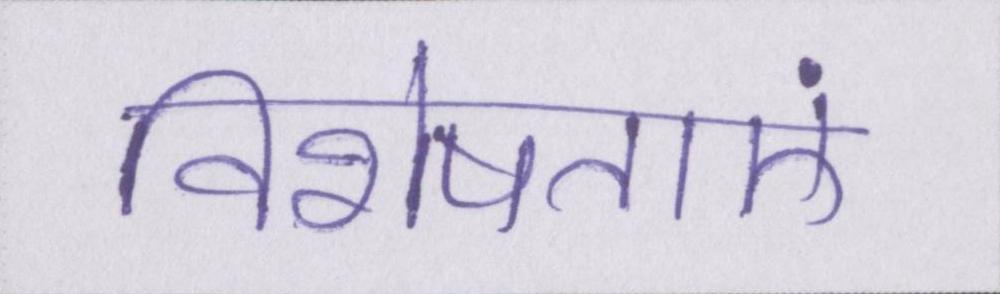 विशेषताएं